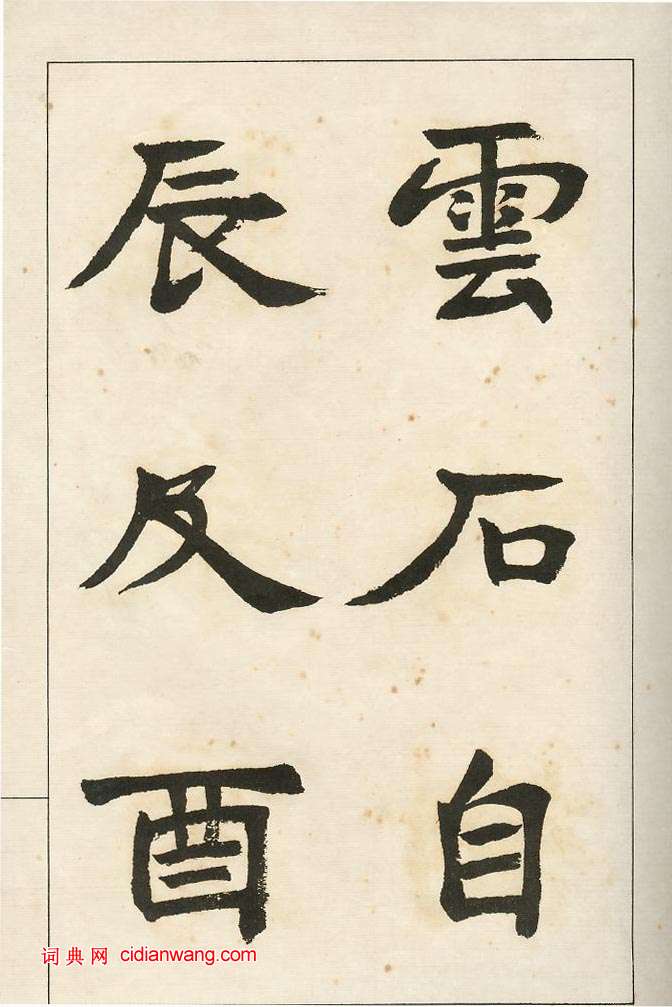 雲石自
辰及酉
词典网 cidianwang.com